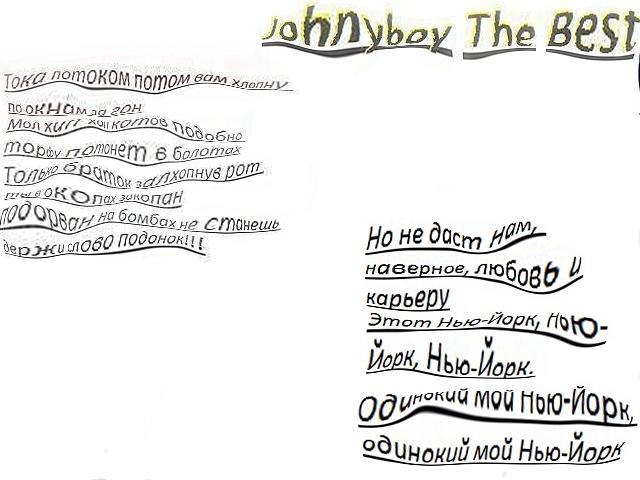 Johnyboy The Best
Тока потоком потом вам хлопну
по окнам за гон
Мол хип хоп катов подобно
торфу потонет в болотах
Только браток захлопнув рот
ты в окопах закопан
подорван на бомбах не станешь
держи слово подонок!!!
Но не даст нам,
наверное, любовь и
карьеру
Этот Нью-Йорк, Нью-
Йорк, Нью-Йорк.
Одинокий мой Нью-Йорк,
одинокий мой Нью-Йорк